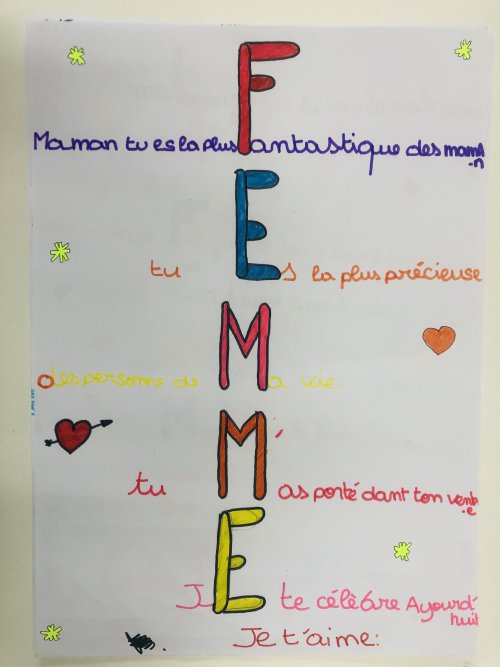 Maman tu es la plus Fantastique des mamA
-n
tu Es la plus précieuse
des personne de Ma vie.
tu M'as porté dant ton ventr
-e
JE te célèbre Ayourd'
huit
Je t'aime: